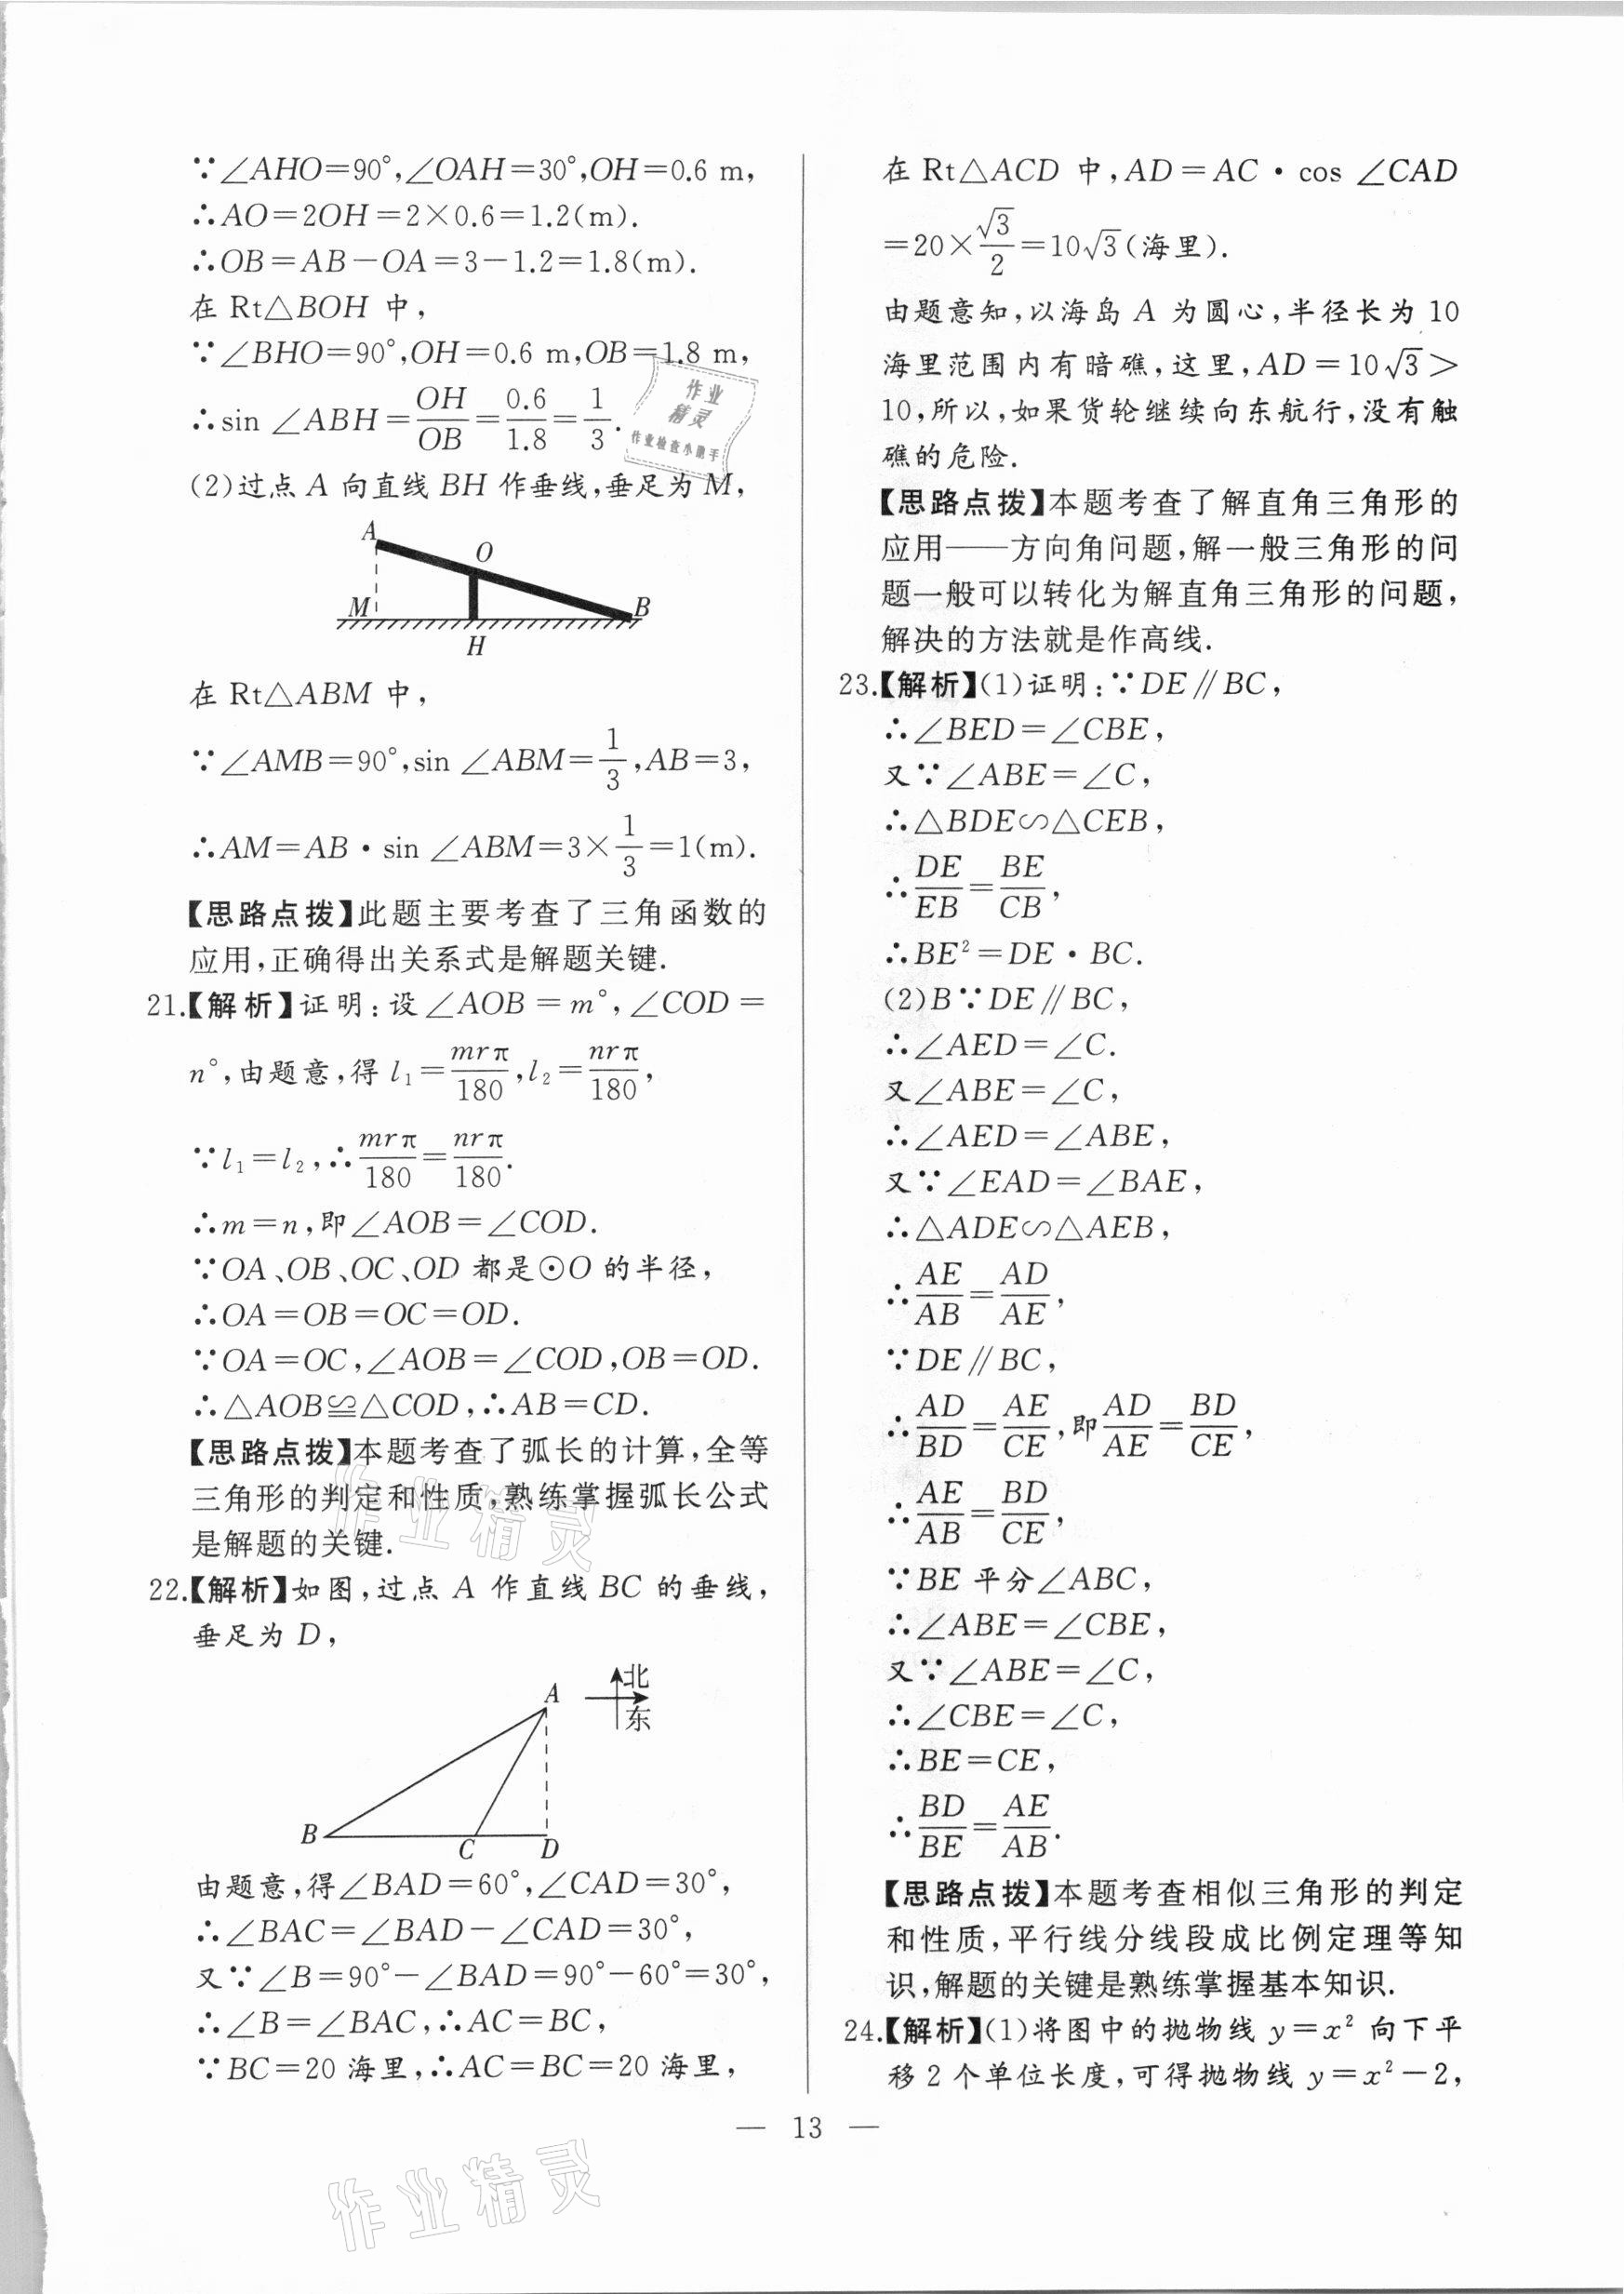 ∵∠AHO=90°,∠OAH=30°,OH=0.6 m,
∴AO=2OH=2×0.6=1.2(m).
∴OB=AB-OA=3-1.2=1.8(m).
在 Rt△BOH 中,
∵∠BHO=90°,OH=0.6 m,OB=1.8 m,
∴sin ∠ABH=OH/OB=0.6/1.8=1/3.
作业
精灵
作业检查小助手
(2)过点 A 向直线 BH 作垂线,垂足为 M,
A
O
M
B
H
在 Rt△ABM 中,
∵∠AMB=90°,sin ∠ABM=1/3,AB=3,
∴AM=AB·sin ∠ABM=3×1/3=1(m).
【思路点拨】此题主要考查了三角函数的
应用,正确得出关系式是解题关键.
21.【解析】证明:设∠AOB=m°,∠COD=
n°,由题意,得 l₁=mrπ/180,l₂=nrπ/180,
∵l₁=l₂,∴mrπ/180=nrπ/180.
∴m=n,即∠AOB=∠COD.
∵OA、OB、OC、OD 都是⊙O 的半径,
∴OA=OB=OC=OD.
∵OA=OC,∠AOB=∠COD,OB=OD.
∴△AOB≌△COD,∴AB=CD.
【思路点拨】本题考查了弧长的计算,全等
三角形的判定和性质,熟练掌握弧长公式
是解题的关键.
作业精灵
22.【解析】如图,过点 A 作直线 BC 的垂线,
垂足为 D,
北
A
东
B
C
D
由题意,得∠BAD=60°,∠CAD=30°,
∴∠BAC=∠BAD-∠CAD=30°,
又∵∠B=90°-∠BAD=90°-60°=30°,
∴∠B=∠BAC,∴AC=BC,
∵BC=20 海里,∴AC=BC=20 海里,
在 Rt△ACD 中,AD=AC·cos ∠CAD
=20×√3/2=10√3(海里).
由题意知,以海岛 A 为圆心,半径长为 10
海里范围内有暗礁,这里,AD=10√3>
10,所以,如果货轮继续向东航行,没有触
礁的危险.
【思路点拨】本题考查了解直角三角形的
应用——方向角问题,解一般三角形的问
题一般可以转化为解直角三角形的问题,
解决的方法就是作高线.
23.【解析】(1)证明:∵DE∥BC,
∴∠BED=∠CBE,
又∵∠ABE=∠C,
∴△BDE∽△CEB,
∴DE/EB=BE/CB,
∴BE²=DE·BC.
(2)B∵DE∥BC,
∴∠AED=∠C.
又∠ABE=∠C,
∴∠AED=∠ABE,
又∵∠EAD=∠BAE,
∴△ADE∽△AEB,
∴AE/AB=AD/AE,
∵DE∥BC,
∴AD/BD=AE/CE,即AD/AE=BD/CE,
∴AE/AB=BD/CE,
∵BE 平分∠ABC,
∴∠ABE=∠CBE,
又∵∠ABE=∠C,
∴∠CBE=∠C,
∴BE=CE,
∴BD/BE=AE/AB.
【思路点拨】本题考查相似三角形的判定
和性质,平行线分线段成比例定理等知
识,解题的关键是熟练掌握基本知识.
24.【解析】(1)将图中的抛物线 y=x² 向下平
移 2 个单位长度,可得抛物线 y=x²-2,
— 13 —
作业精灵